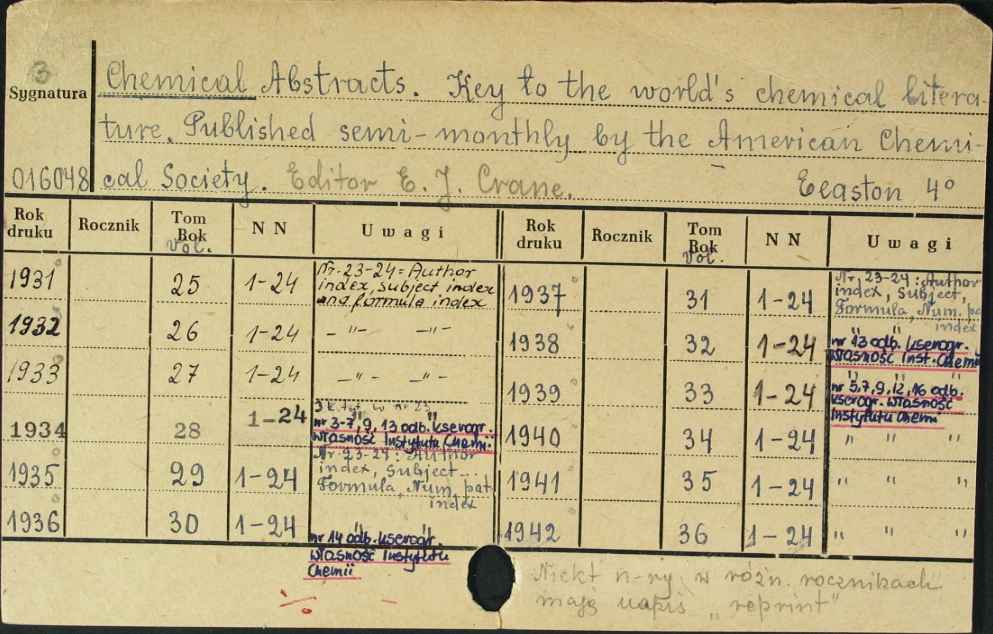 3
Sygnatura
016048
Chemical Abstracts. Key to the world's chemical litera-
ture. Published semi-monthly by the American Chemi-
cal Society. Editor E. J. Crane. Eeaston 4°
Rok druku Rocznik Tom Rok Vol. NN Uwagi
1931 25 1-24 Nr. 23-24 = Author index, subject index and formula index
1932 26 1-24 - " - - " -
1933 27 1-24 - " - - " -
1934 28 1-24 w nr 23
nr 3-7, 9, 13 odb. kserogr.
własność Instytutu Chemii
1935 29 1-24 Nr. 23-24: Author index, Subject Formula, Num. pat. index
1936 30 1-24 " "
nr 14 odb. kserogr.
własność Instytutu
Chemii
Rok druku Rocznik Tom Rok Vol. NN Uwagi
1937 31 1-24 Nr. 23-24: Author index, Subject, Formula, Num. pa index
1938 32 1-24 " "
nr 13 odb. kserogr.
własność Inst. Chemii
1939 33 1-24 " "
nr 5,7,9,12,16 odb.
kserogr. własność
Instytutu Chemi
1940 34 1-24 " " "
1941 35 1-24 " " "
1942 36 1-24 " " "
Niekt n-ry w różn. rocznikach
mają napis „reprint"